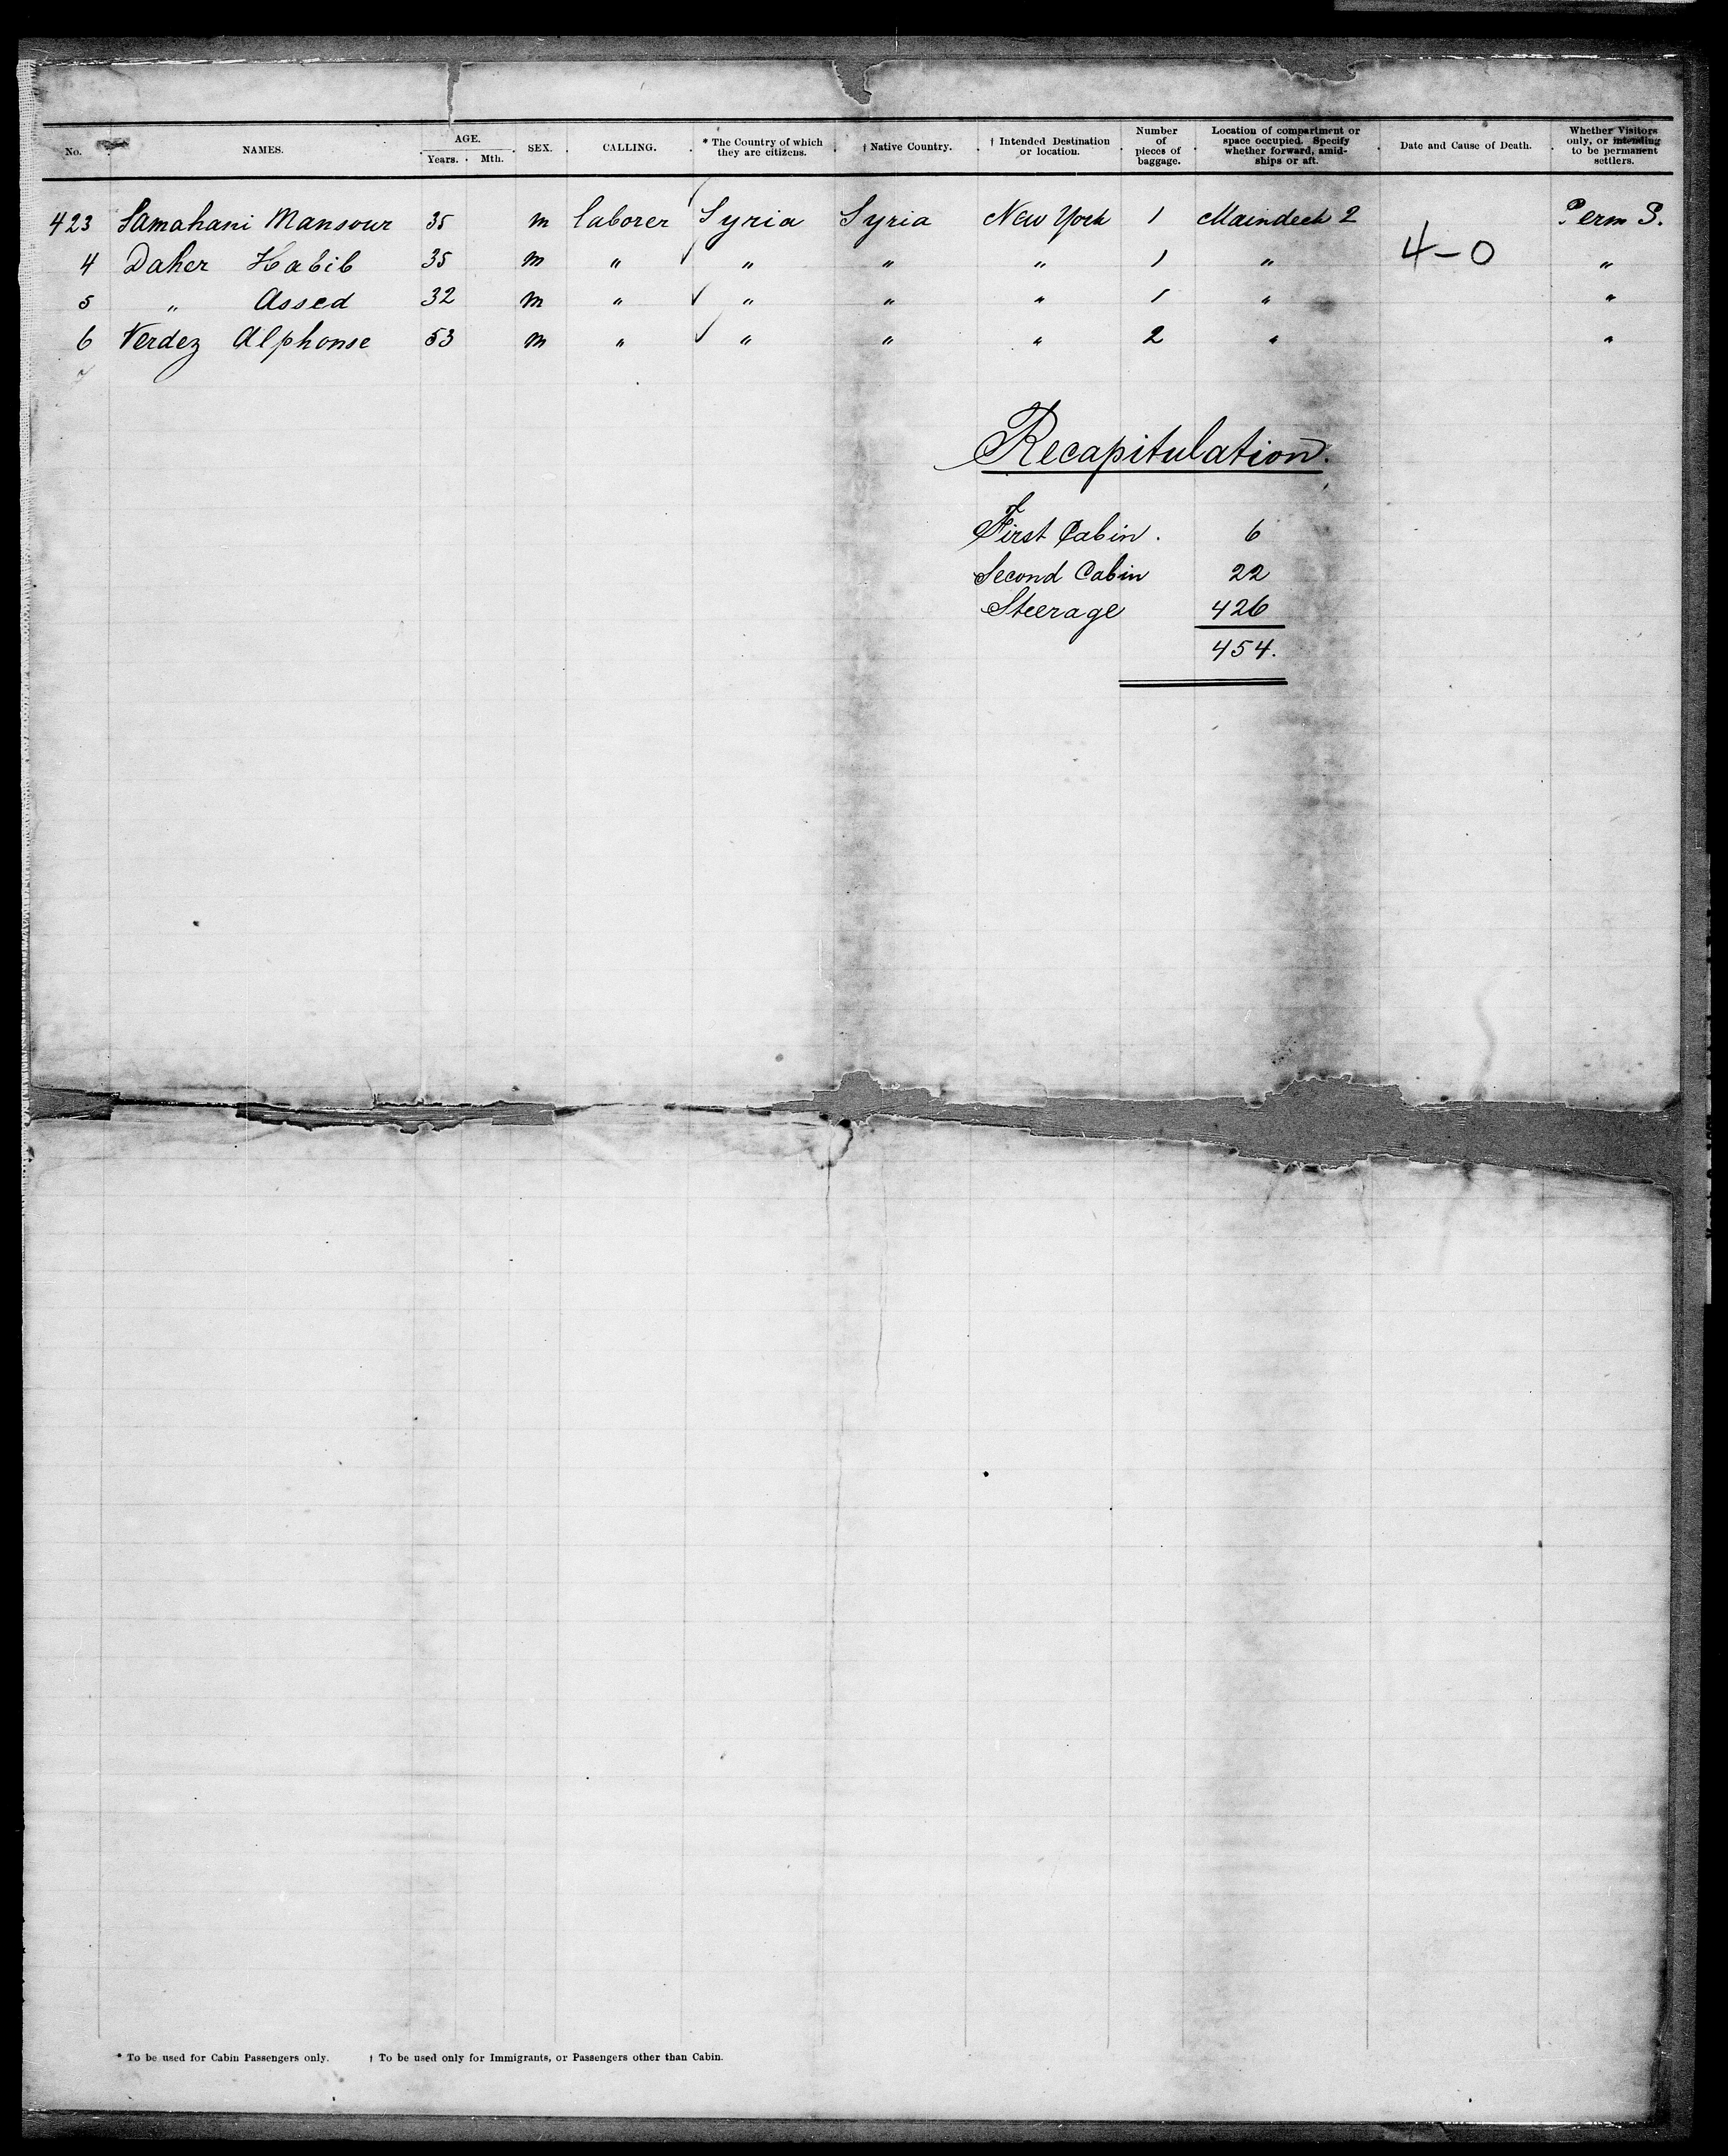 No. NAMES. AGE. Years. Mth. SEX. CALLING. * The Country of which they are citizens. † Native Country. † Intended Destination or location. Number of pieces of baggage. Location of compartment or space occupied. Specify whether forward, amidships or aft. Date and Cause of Death. Whether Visitors only, or intending to be permanent settlers.
423 Samahani Mansour 35 m laborer Syria Syria New York 1 Maindeck 2 Perm S.
4 Daher Habib 35 m " " " " 1 " 4-0 "
5 " Assed 32 m " " " " 1 " "
6 Verdez Alphonse 53 m " " " " 2 " "
7
Recapitulation.
First Cabin. 6
Second Cabin 22
Steerage 426
454.
* To be used for Cabin Passengers only. † To be used only for Immigrants, or Passengers other than Cabin.